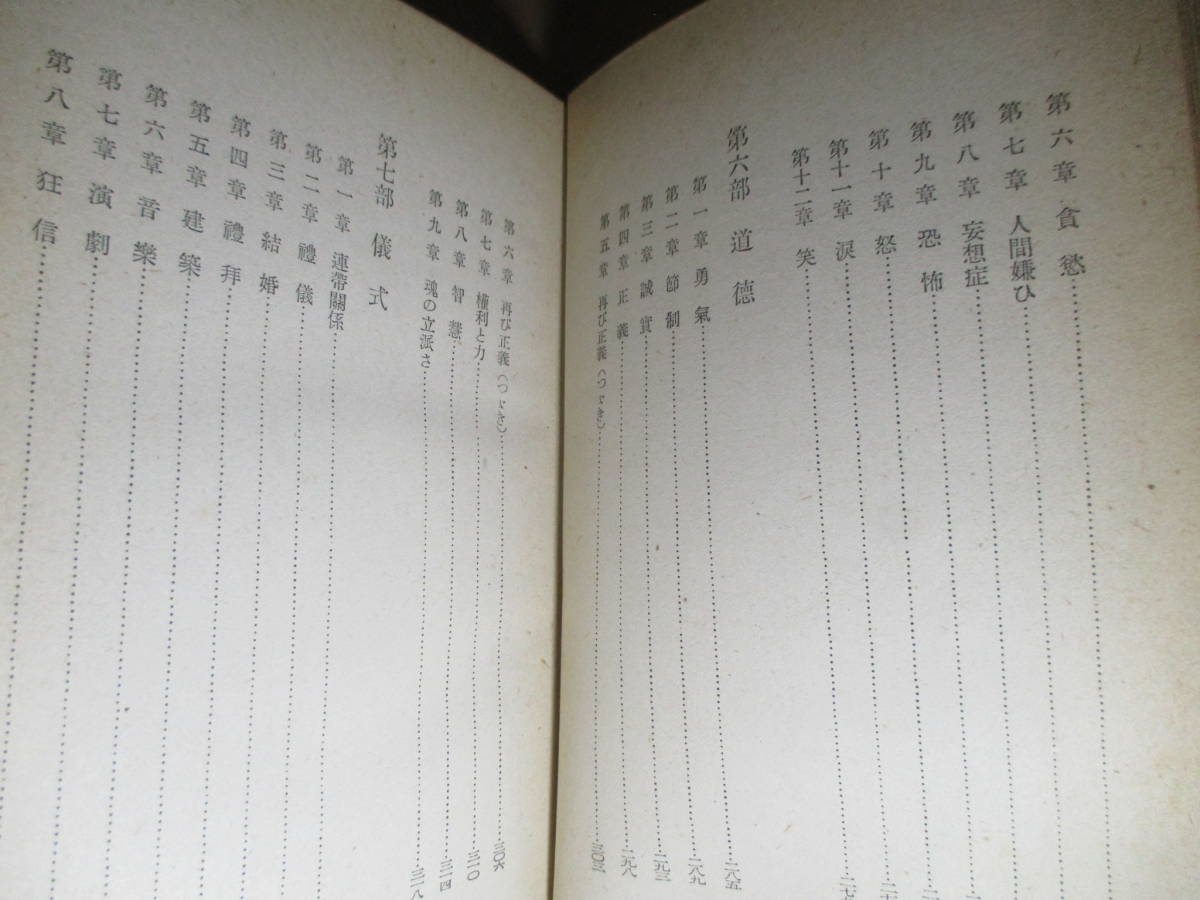 第六章 貪慾
第七章 人間嫌ひ
第八章 妄想症
第九章 恐怖
第十章 怒
第十一章 涙
第十二章 笑
第六部 道德
第一章 勇氣 二八五
第二章 節制 二八九
第三章 誠實 二九三
第四章 正義 二九八
第五章 再び正義(つゞき) 三〇三
第六章 再び正義(つゞき) 三〇六
第七章 權利と力 三一〇
第八章 智慧 三一四
第九章 魂の立派さ 三一八
第七部 儀式
第一章 連帶關係
第二章 禮儀
第三章 結婚
第四章 禮拜
第五章 建築
第六章 音樂
第七章 演劇
第八章 狂信